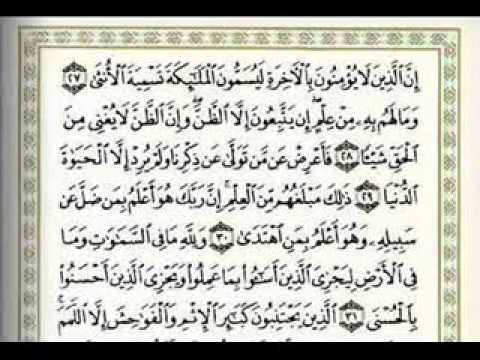 إِنَّ ٱلَّذِينَ لَا يُؤْمِنُونَ بِٱلْـَٔاخِرَةِ لَيُسَمُّونَ ٱلْمَلَـٰٓئِكَةَ تَسْمِيَةَ ٱلْأُنثَىٰ ٢٧
وَمَا لَهُم بِهِۦ مِنْ عِلْمٍ ۖ إِن يَتَّبِعُونَ إِلَّا ٱلظَّنَّ ۖ وَإِنَّ ٱلظَّنَّ لَا يُغْنِى مِنَ
ٱلْحَقِّ شَيْـًٔا ٢٨ فَأَعْرِضْ عَن مَّن تَوَلَّىٰ عَن ذِكْرِنَا وَلَمْ يُرِدْ إِلَّا ٱلْحَيَوٰةَ
ٱلدُّنْيَا ٢٩ ذَٰلِكَ مَبْلَغُهُم مِّنَ ٱلْعِلْمِ ۚ إِنَّ رَبَّكَ هُوَ أَعْلَمُ بِمَن ضَلَّ عَن
سَبِيلِهِۦ وَهُوَ أَعْلَمُ بِمَنِ ٱهْتَدَىٰ ٣٠ وَلِلَّهِ مَا فِى ٱلسَّمَـٰوَٰتِ وَمَا
فِى ٱلْأَرْضِ لِيَجْزِىَ ٱلَّذِينَ أَسَـٰٓـُٔوا۟ بِمَا عَمِلُوا۟ وَيَجْزِىَ ٱلَّذِينَ أَحْسَنُوا۟
بِٱلْحُسْنَى ٣١ ٱلَّذِينَ يَجْتَنِبُونَ كَبَـٰٓئِرَ ٱلْإِثْمِ وَٱلْفَوَٰحِشَ إِلَّا ٱللَّمَمَ ۚ